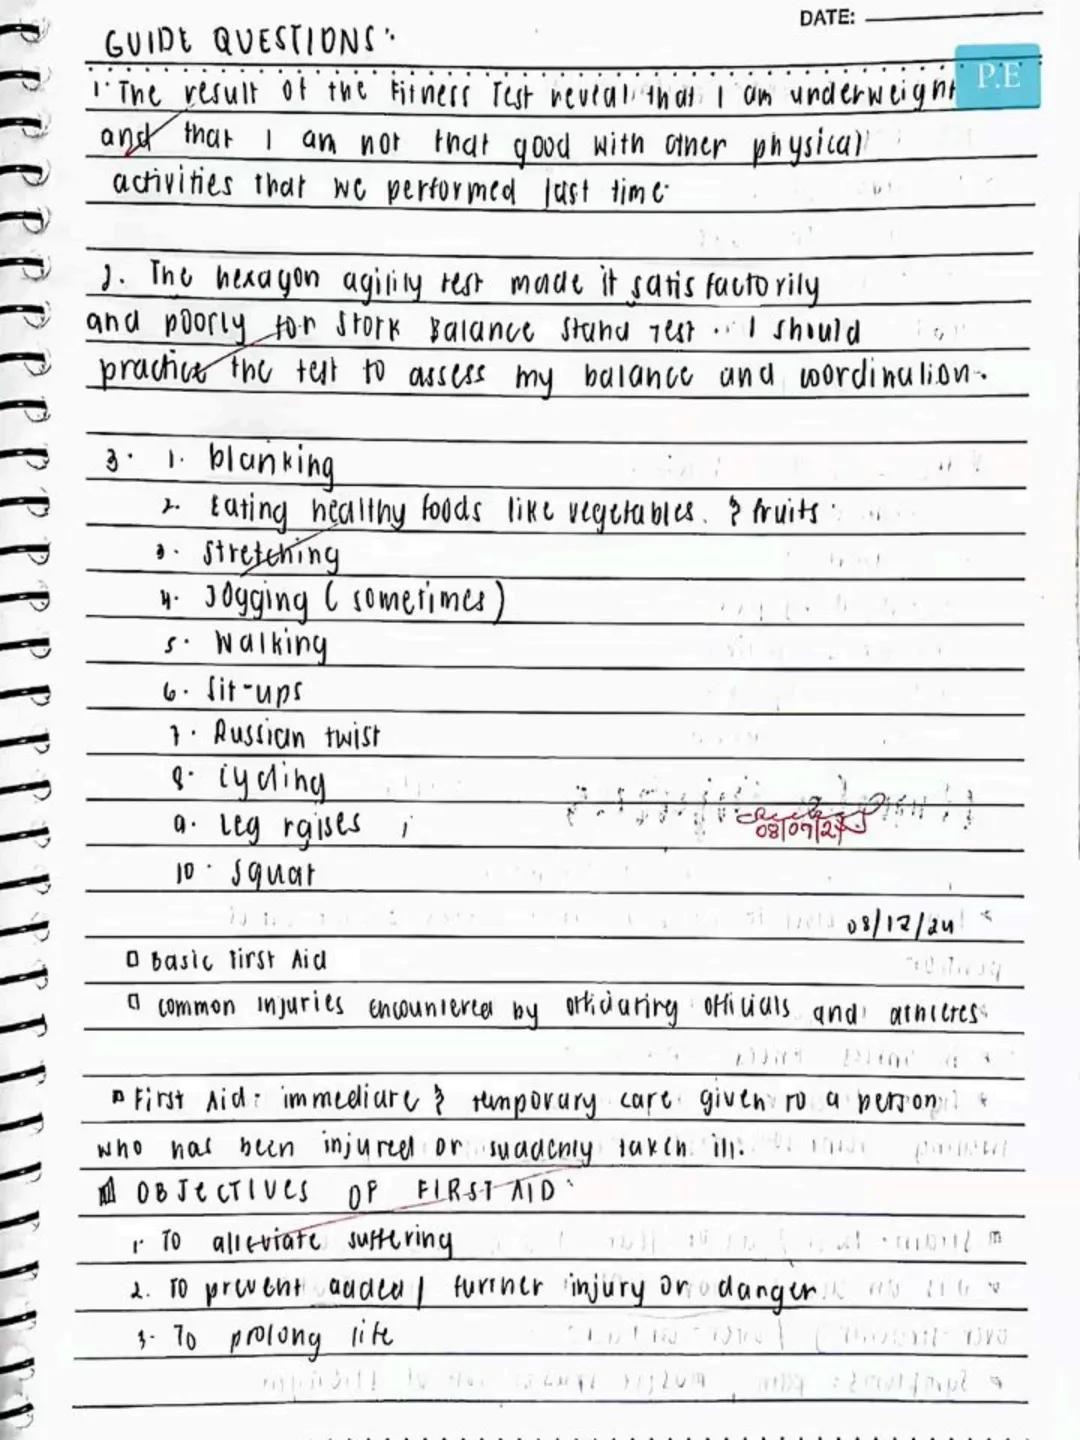 DATE:
GUIDE QUESTIONS:
P.E
1. The result of the Fitness Test reveal that I am underweight
and that I am not that good with other physical
activities that we performed last time.
2. The hexagon agility test made it satisfactorily
and poorly for Stork Balance Stand Test. I should
practice the test to assess my balance and coordination.
3. 1. blanking
2. Eating healthy foods like vegetables. & fruits
3. Stretching
4. Jogging (sometimes)
5. Walking
6. Sit-ups
7. Russian twist
8. Cycling
9. Leg raises
08/07/24
10. Squat
08/12/24
Basic First Aid
common injuries encountered by officiating officials and athletes
First Aid: immediate & temporary care given to a person
who has been injured or suddenly taken ill.
OBJECTIVES OF FIRST AID:
1. To alleviate suffering
2. To prevent added/ further injury or danger
3. To prolong life